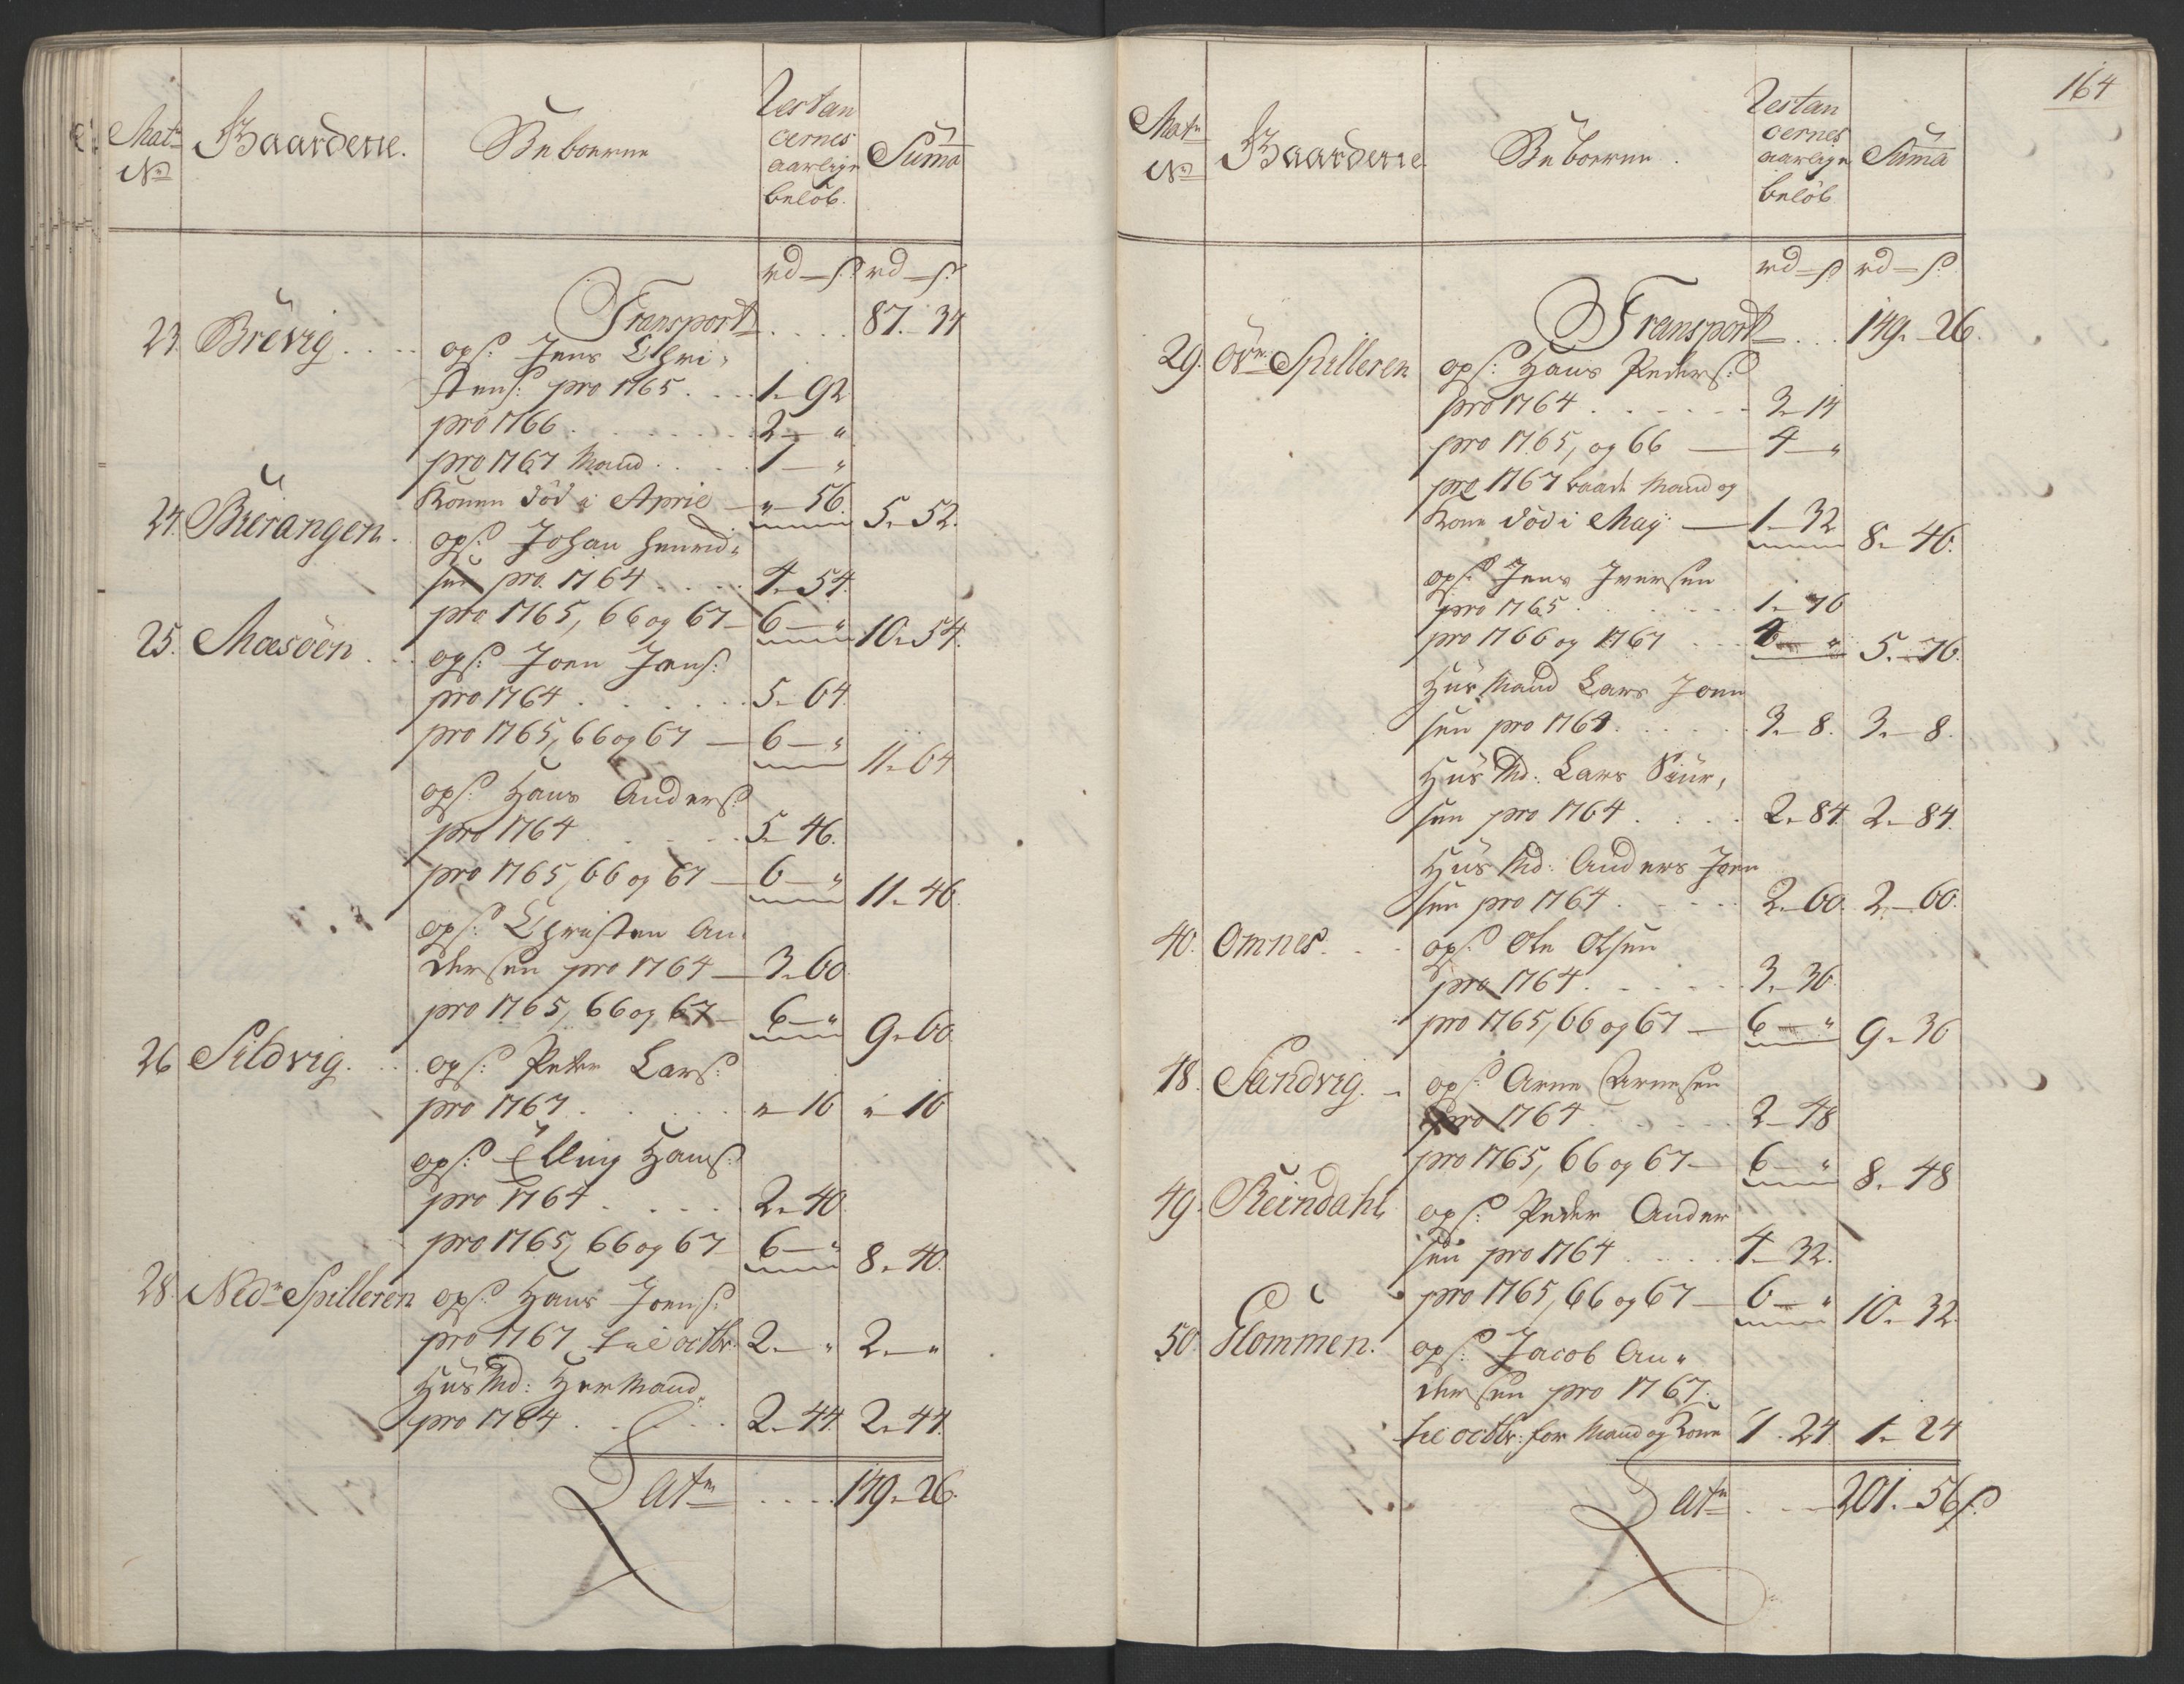 Mat:
No
Gaardene.
Beboerne
Restan
cernes
aarlige
beløb.
Suma
rd — s: rd — s:
Transport .... 87. 34
23. Brevig ....
ops: Jens Chri,
stens: pro 1765 .... 1. 92
pro 1766 ........ 2 — "
pro 1767 Mand .... 1 — "
Konen død i April — " — 56. 5. 52.
24. Bierangen.
ops: Johan Henrid,
sen pro 1764 .... 4. 54.
pro 1765, 66 og 67 — 6 — " 10. 54.
25. Mæsøen ...
ops: Joen Jens:
pro 1764 ...... 5. 64.
pro 1765, 66 og 67 — 6 — " 11. 64
ops: Hans Anders:
pro 1764 ..... 5. 46.
pro 1765, 66 og 67 — 6 — " 11. 46.
ops: Christen An,
dersen pro 1764 — 3. 60
pro 1765, 66 og 67 — 6 — " 9. 60.
26 Sildvig. ...
ops: Peder Lars:
pro 1767 ..... " — 16 " — 16
ops: Elling Hans:
pro 1764 .... 2. 40.
pro 1765, 66 og 67 6 — " 8. 40.
28. Nedr Spilleren
ops: Hans Joens:
pro 1767 til octbr. 2. — " 2. — "
HusMd: HerMand
pro 1764 .... 2. 44. 2. 44.
Latr .... 149. 26.
164
Matr
No
Gaardene
Beboerne.
Restan
cernes
aarlige
beløb
Suma
rd — s: rd — s:
Transport ... 149. 26.
29. Ovr Spilleren
ops: Hans Peders:
pro 1764 ..... 3. 14
pro 1765, og 66 — 4 — "
pro 1767 baade Mand og
Kone død i Maÿ — 1. 32 8. 46.
ops: Jens Iversen
pro 1765 ...... 1. 76
pro 1766 og 1767 ... 4 — " 5. 76.
HusMand Lars Joen
sen pro 1764 ..... 3. 8. 3. 8.
HusMd: Lars Siur,
sen pro 1764 .... 2. 84. 2. 84.
HusMd: Anders Joen
sen pro 1764 .... 2. 60. 2. 60.
40. Omnes. ..
ops: Ole Olsen
pro 1764 ..... 3. 36.
pro 1765, 66 og 67 — 6 — " 9. 36
48. Sandvig. —
ops: Arne Arnesen
pro 1764 ..... 2. 48
pro 1765, 66 og 67 — 6 — " 8. 48
49. Reindahl
ops: Peder Ander
sen pro 1764 .... 4. 32.
pro 1765, 66 og 67 — 6 — " 10. 32.
50. Glommen.
ops: Jacob An,
dersen pro 1767.
til octbr: for Mand og Kone 1. 24. 1. 24
Latr .... 201. 56 s: